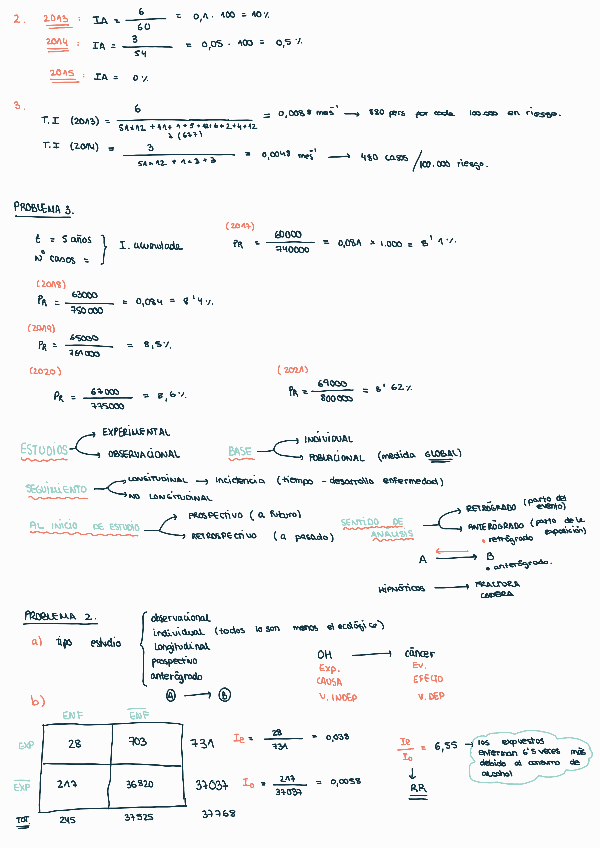 2. 2013 : IA = 6/60 = 0,1 · 100 = 10%
2014 : IA = 3/54 = 0,05 · 100 = 0,5 %
2015 : IA = 0%
3.
T.I (2013) = 6 / = 0,0088 mes⁻¹ → 880 pers por cada 100.000 en riesgo.
T.I (2014) = 3 / = 0,0048 mes⁻¹ → 480 casos / 100.000 riesgo.
PROBLEMA 3.
t = 5 años
Nº casos =
I. acumulada
(2017)
PR = 60000/740000 = 0,081 × 1.000 = 8'1%
(2018)
PR = 63000/750000 = 0,084 = 8'4%
(2019)
PR = 65000/761000 = 8,5%
(2020)
PR = 67000/775000 = 8,6%
(2021)
PR = 69000/800000 = 8'62%
ESTUDIOS → EXPERIMENTAL
→ OBSERVACIONAL
BASE → INDIVIDUAL
→ POBLACIONAL (medida GLOBAL)
SEGUIMIENTO → LONGITUDINAL → Incidencia (tiempo - desarrollo enfermedad)
→ NO LONGITUDINAL
AL INICIO DE ESTUDIO → PROSPECTIVO (a futuro)
→ RETROSPECTIVO (a pasado)
SENTIDO DE ANÁLISIS → RETRÓGRADO (parto del evento)
→ ANTERÓGRADO (parto de la exposición)
• retrógrado
A B
• anterógrado.
HIPNÓTICOS → FRACTURA CADERA
PROBLEMA 2.
a) tipo estudio
observacional
individual (todos lo son menos el ecológico)
longitudinal
prospectivo
anterógrado
A → B
OH → cáncer
Exp. Ev.
CAUSA EFECTO
V. INDEP V. DEP
b)
ENF ENF
EXP 28 703 731
EXP 217 36820 37037
TOT 245 37525 37768
Ie = 28/731 = 0,038
Io = 217/37037 = 0,0058
Ie/Io = 6,55 → los expuestos enferman 6'5 veces más debido al consumo de alcohol
↓
RR